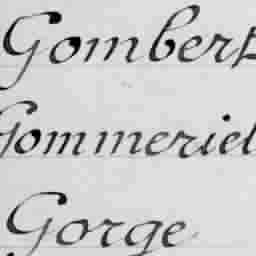 Gombert
Gommeriel
Gorge